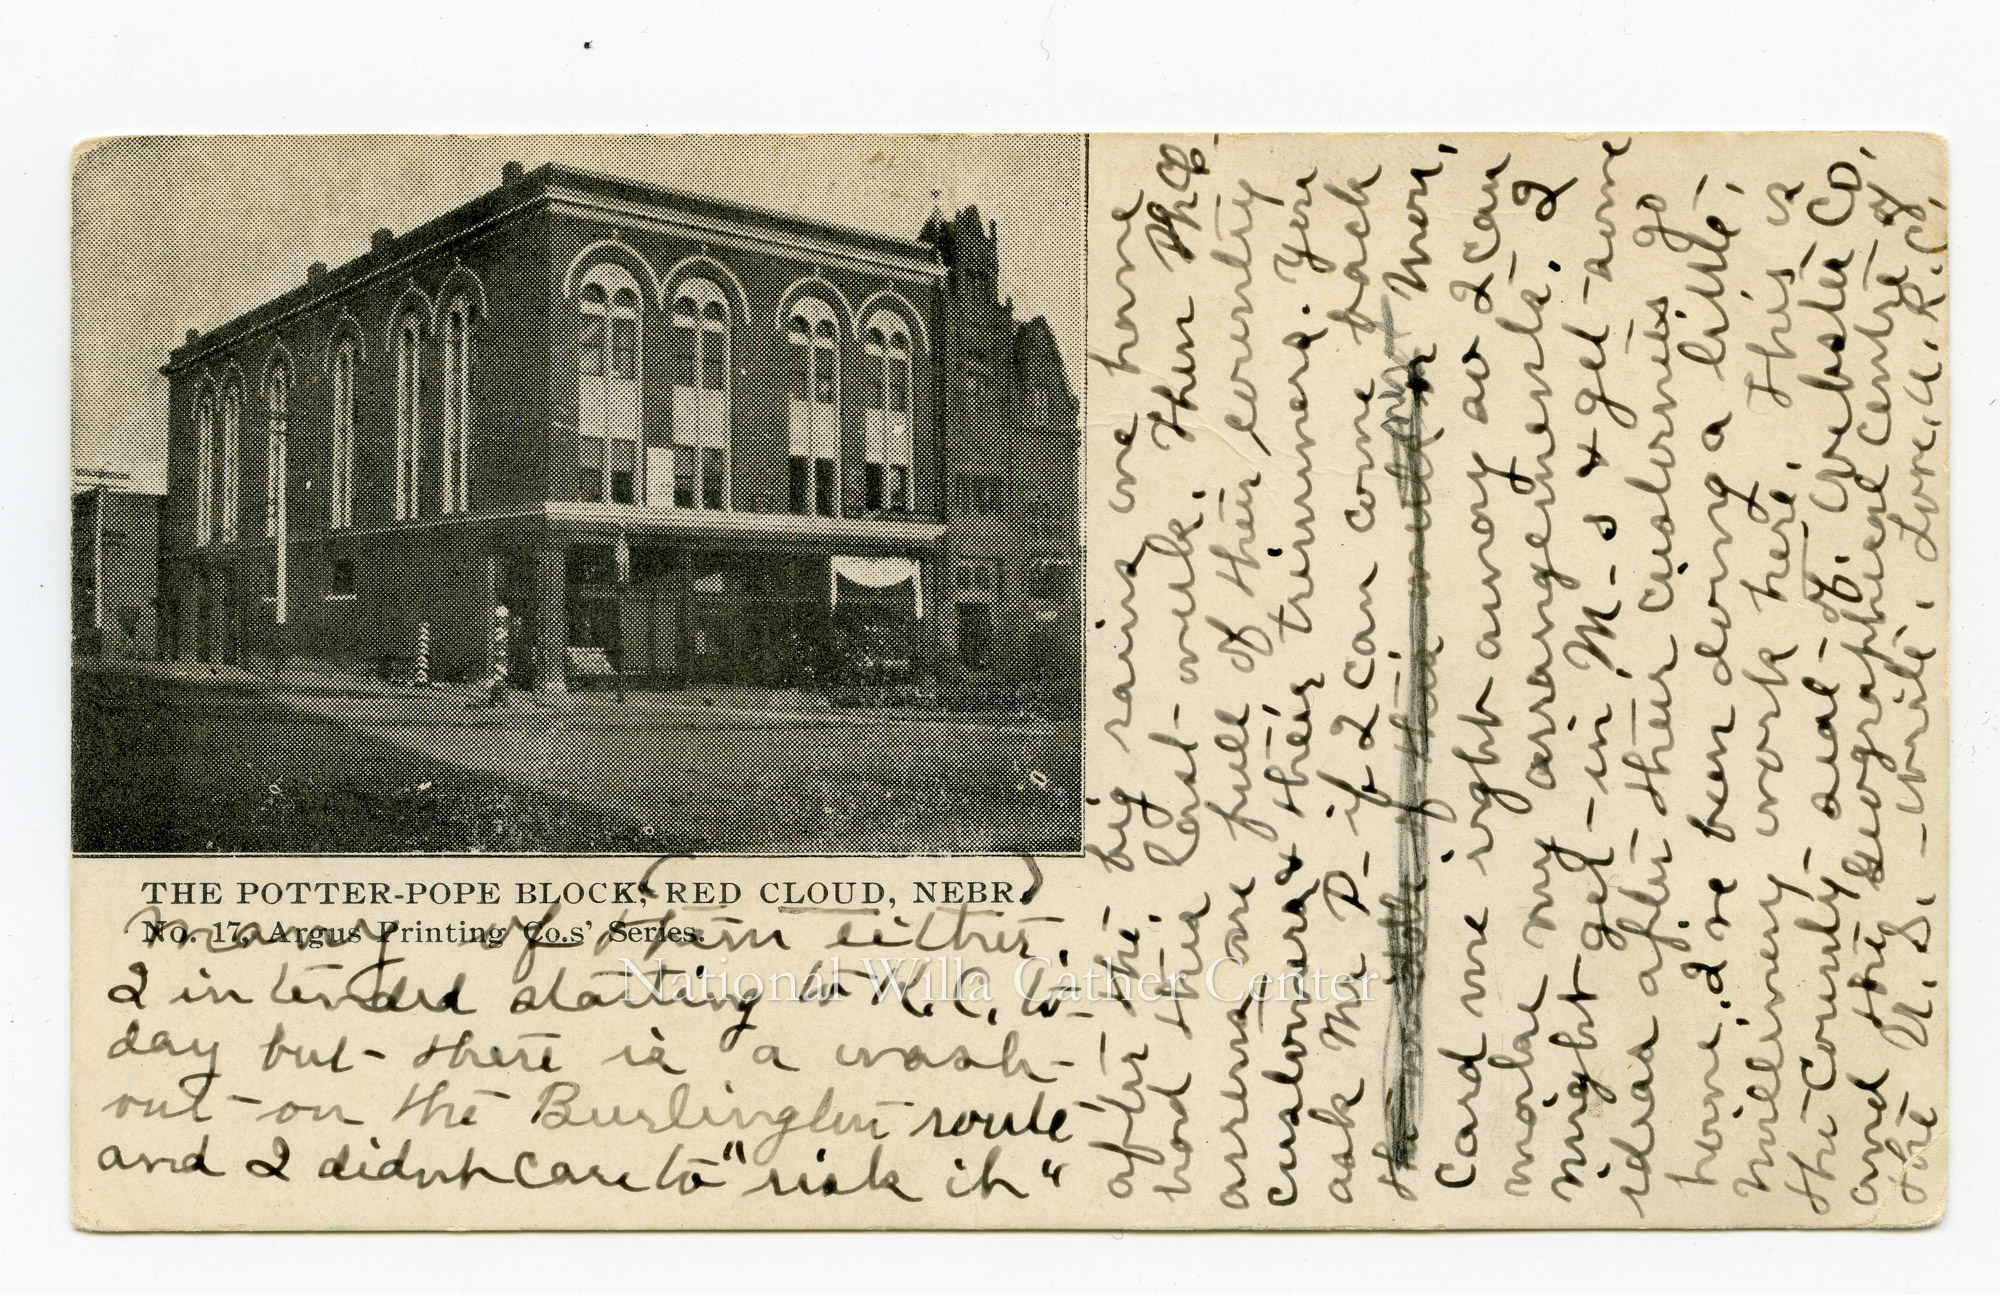 THE POTTER-POPE BLOCK, RED CLOUD, NEBR.
No. 17, Argus Printing Co.s' Series.
many of them either.
I intended starting to K.C. to-
day but there is a wash-
out on the Burlington route
and I didn't care to "risk it"
after the big rains we have
had this last week. Then the
are full of their country
customers & their trimmers. You
ask Me P- if I can come back
Card me right away so I can
make my arrangements. I
might get in M-s & get some
ideas after their customers go
home. I've been doing a little
millinery work here. This is
the County-seat of Webster Co,
and the Geographical Centre of
the U.S. - write. Love, A.R.C.
National Willa Cather Center